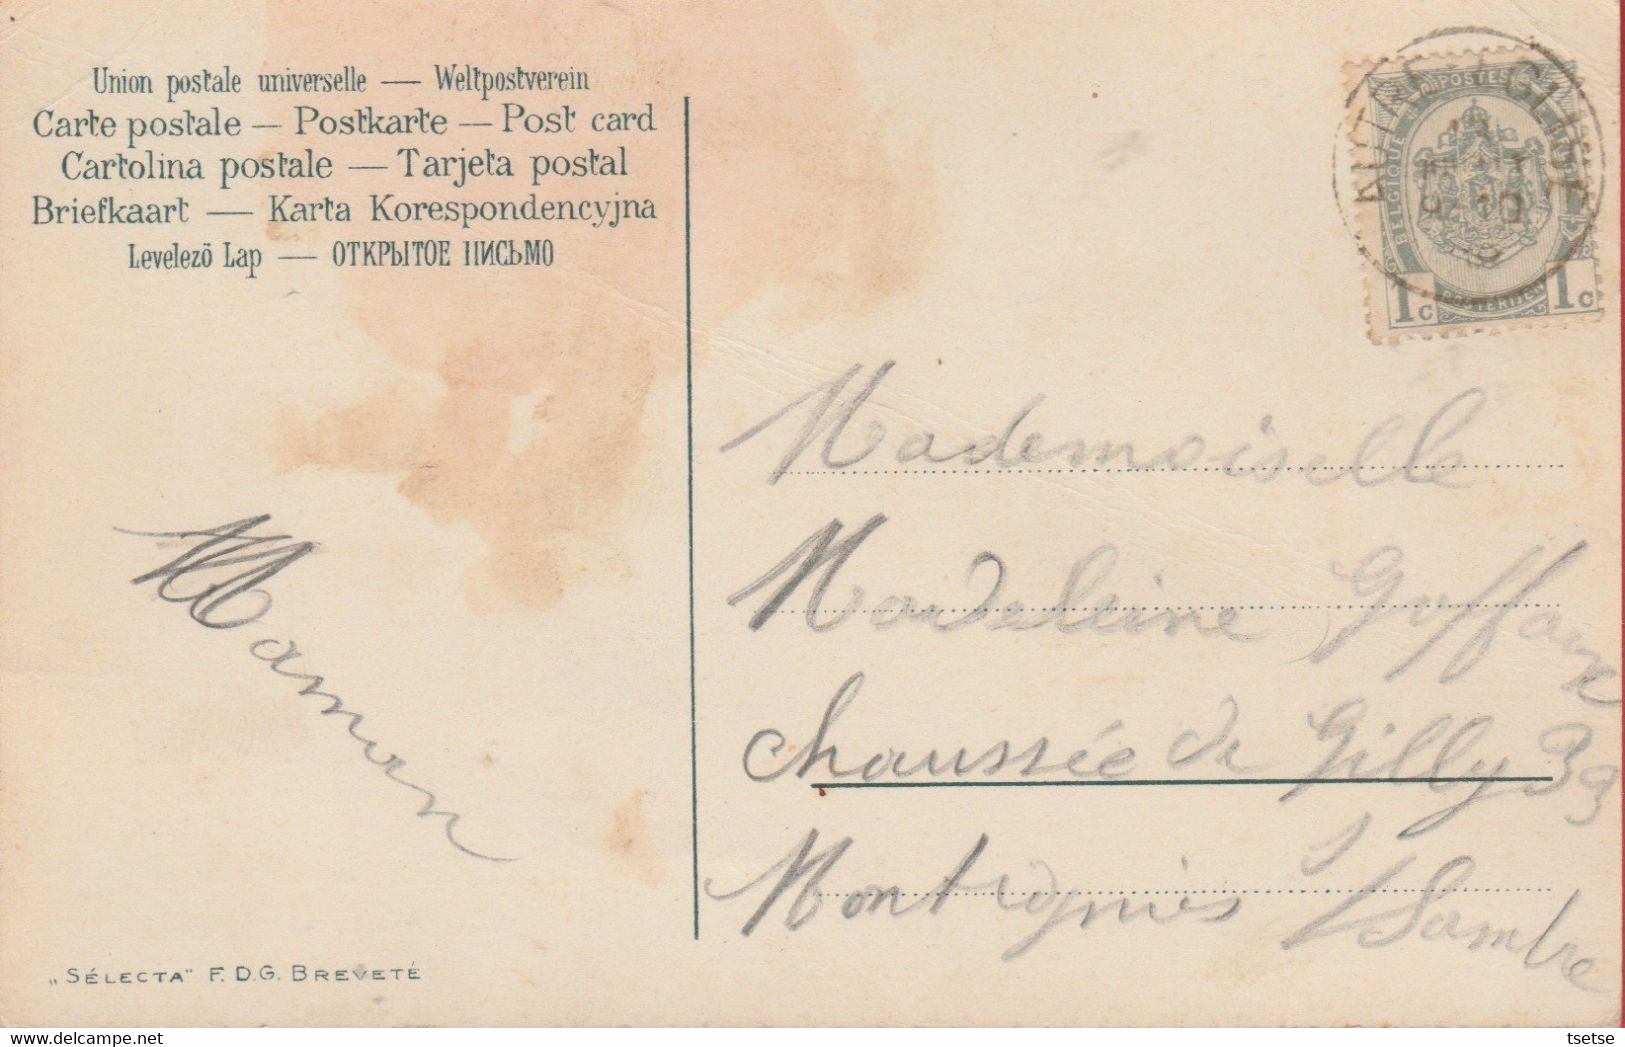 Union postale universelle — Weltpostverein
Carte postale — Postkarte — Post card
Cartolina postale — Tarjeta postal
Briefkaart — Karta Korespondencyjna
Levelezö Lap — ОТКРЫТОЕ ПИСЬМО
POSTES
BELGIQUE
1c 1c
Mademoiselle
Madeleine Goffaux
Chaussée de Gilly 39
Montignies s/Sambre
Maman
„SÉLECTA" F.D.G. BREVETÉ
delcampe.net
tsetse